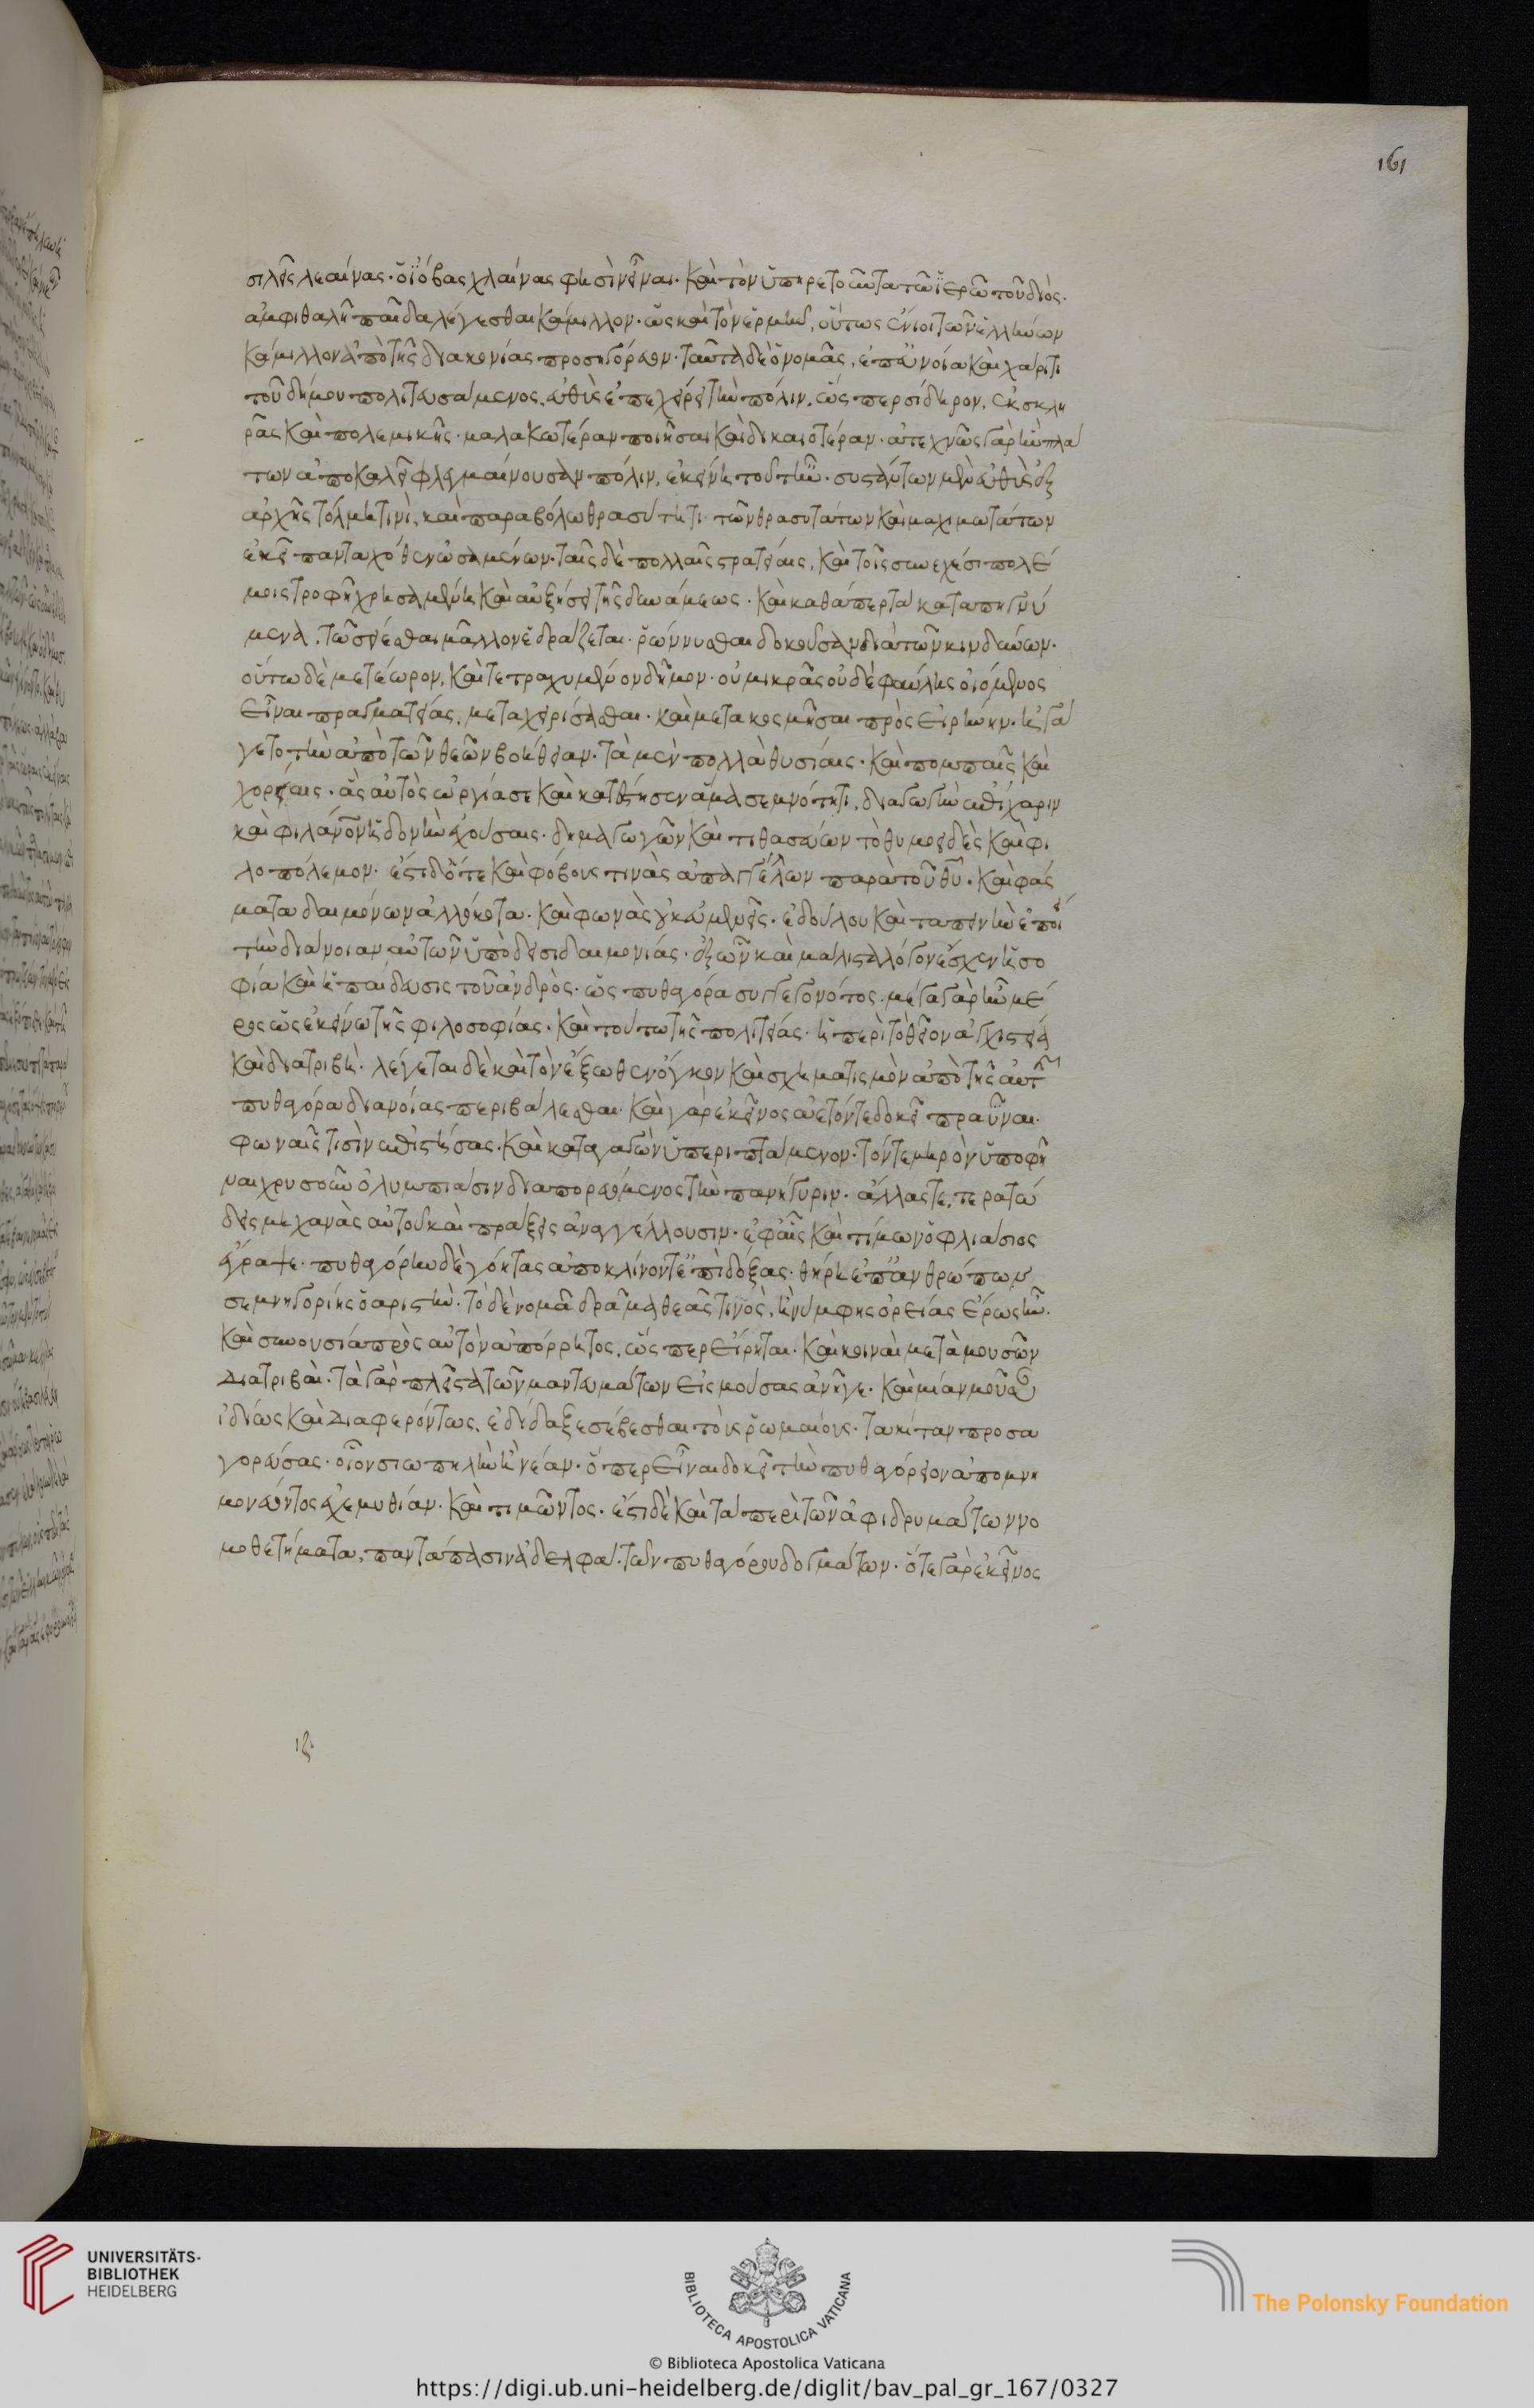 161
σιλεῖς λεαίνας. ὁ ἰόβας χλαίνας φησὶν εἶναι. καὶ τὸν ὑπηρετοῦντα τῶ ἱερῶ τοῦ διὸς.
ἀμφιθαλῆ παῖδα λέγεσθαι κάμιλλον. ὡς καὶ τὸν ἑρμῆν, οὕτως ἔνιοι τῶν ἑλλήνων
κάμιλλον ἀπὸ τῆς διακονίας προσηγόρευον. ταῦτα δὲ ὁ νομᾶς, ἐπ' εὐνοία καὶ χάριτι
τοῦ δήμου πολιτευσάμενος, εὐθὺς ἐπεχείρει τὴν πόλιν, ὥσπερ σίδηρον, ἐκ σκλη
ρᾶς καὶ πολεμικῆς. μαλακωτέραν ποιῆσαι καὶ δικαιοτέραν. ἀτεχνῶς γὰρ ἣν πλά
των ἀποκαλεῖ φλεγμαίνουσαν πόλιν, ἐκείνη τότ' ἦν. συστᾶσα μὲν εὐθὺς ἐξ
ἀρχῆς τόλμη τινὶ, καὶ παραβόλω θρασύτητι τῶν θρασυτάτων καὶ μαχιμωτάτων
ἐκεῖ πανταχόθεν ὠσαμένων. ταῖς δὲ πολλαῖς στρατείαις, καὶ τοῖς συνεχέσι πολέ
μοις τροφῆ χρησαμένη καὶ αὐξήσει τῆς δυνάμεως. καὶ καθάπερ τὰ καταπηγνύ
μενα, τῶ σείεσθαι μᾶλλον ἑδράζεται. ῥώννυσθαι δοκοῦσαν διὰ τῶν κινδύνων.
οὕτω δὲ μετέωρον, καὶ τετραχυμένον δῆμον. οὐ μικρᾶς οὐδὲ φαύλης οἰόμενος
εἶναι πραγματείας, μεταχειρίσασθαι. καὶ μετακοσμῆσαι πρὸς εἰρήνην. ἐπή
γετο τὴν ἀπὸ τῶν θεῶν βοήθειαν. τὰ μὲν πολλὰ θυσίαις. καὶ πομπαῖς καὶ
χορείαις. ἃς αὐτὸς ὠργίασε καὶ κατέστησεν ἅμα σεμνότητι, διαγωγὴν ἐπίχαριν
καὶ φιλάνθρωπον ἡδονὴν ἐχούσαις. δημαγωγῶν καὶ τιθασεύων τὸ θυμοειδὲς καὶ φι
λοπόλεμον. ἔστι δ' ὅτε καὶ φόβους τινὰς ἀπαγγέλλων παρὰ τοῦ θυ. καὶ φάσ
ματα δαιμόνων ἀλλόκοτα. καὶ φωνὰς οὐκ εὐμενεῖς. ἐδούλου καὶ ταπεινὴν ἐποίει
τὴν διάνοιαν αὐτῶν ὑπὸ δεισιδαιμονίας. ἐξ ὧν καὶ μάλιστα λόγον ἔσχεν ἡ σο
φία καὶ ἡ παίδευσις τοῦ ἀνδρὸς. ὡς πυθαγόρα συγγεγονότος. μέγα γὰρ ἦν μέ
ρος ὡς ἐκείνω τῆς φιλοσοφίας. καὶ τούτω τῆς πολιτείας. ἡ περὶ τὸ θεῖον ἀγχιστεία
καὶ διατριβὴ. λέγεται δὲ καὶ τὸν ἔξωθεν ὄγκον καὶ σχηματισμὸν ἀπὸ τῆς αὐτῆς
πυθαγόρα διανοίας περιβαλέσθαι. καὶ γὰρ ἐκεῖνος ἀετόν τε δοκεῖ πραῧναι.
φωναῖς τισὶν ἐπιστήσας. καὶ καταγαγὼν ὑπεριπτάμενον. τόν τε μηρὸν ὑποφῆ
ναι χρυσοῦν ὀλυμπίασιν διαπορευόμενος τὴν πανήγυριν. ἄλλας τε, τερατώ
δεις μηχανὰς αὐτοῦ καὶ πράξεις ἀναγγέλλουσιν. ἐφ' αἷς καὶ τίμων ὁ φλιάσιος
ἔγραψε. πυθαγόρην δὲ γόητας ἀποκλίνοντ' ἐπὶ δόξας. θήρη ἐπ' ἀνθρώπων
σεμνηγορίης ὀαριστὴν. τὸ δὲ νομᾶ δρᾶμα θεᾶς τινὸς, ἢ νύμφης ὀρείας ἔρως ἦν.
καὶ συνουσία πρὸς αὐτὸν ἀπόρρητος, ὥσπερ εἴρηται. καὶ κοιναὶ μετὰ μουσῶν
διατριβαὶ. τὰ γὰρ πλεῖστα τῶν μαντευμάτων εἰς μούσας ἀνῆγε. καὶ μίαν μοῦσαν
ἰδίως καὶ διαφερόντως, ἐδίδαξε σέβεσθαι τοὺς ῥωμαίους. τακίταν προσα
γορεύσας. οἷον σιωπηλὴν ἢ νέαν. ὅπερ εἶναι δοκεῖ τὴν πυθαγόρειον ἀπομνη
μονεύοντος ἐχεμυθίαν. καὶ τιμῶντος. ἔστι δὲ καὶ τὰ περὶ τῶν ἀφιδρυμάτων νο
μοθετήματα, παντάπασιν ἀδελφὰ. τῶν πυθαγόρου δογμάτων. ὅτε γὰρ ἐκεῖνος
ιζ
UNIVERSITÄTS-
BIBLIOTHEK
HEIDELBERG
BIBLIOTECA APOSTOLICA VATICANA
The Polonsky Foundation
© Biblioteca Apostolica Vaticana
https://digi.ub.uni-heidelberg.de/diglit/bav_pal_gr_167/0327